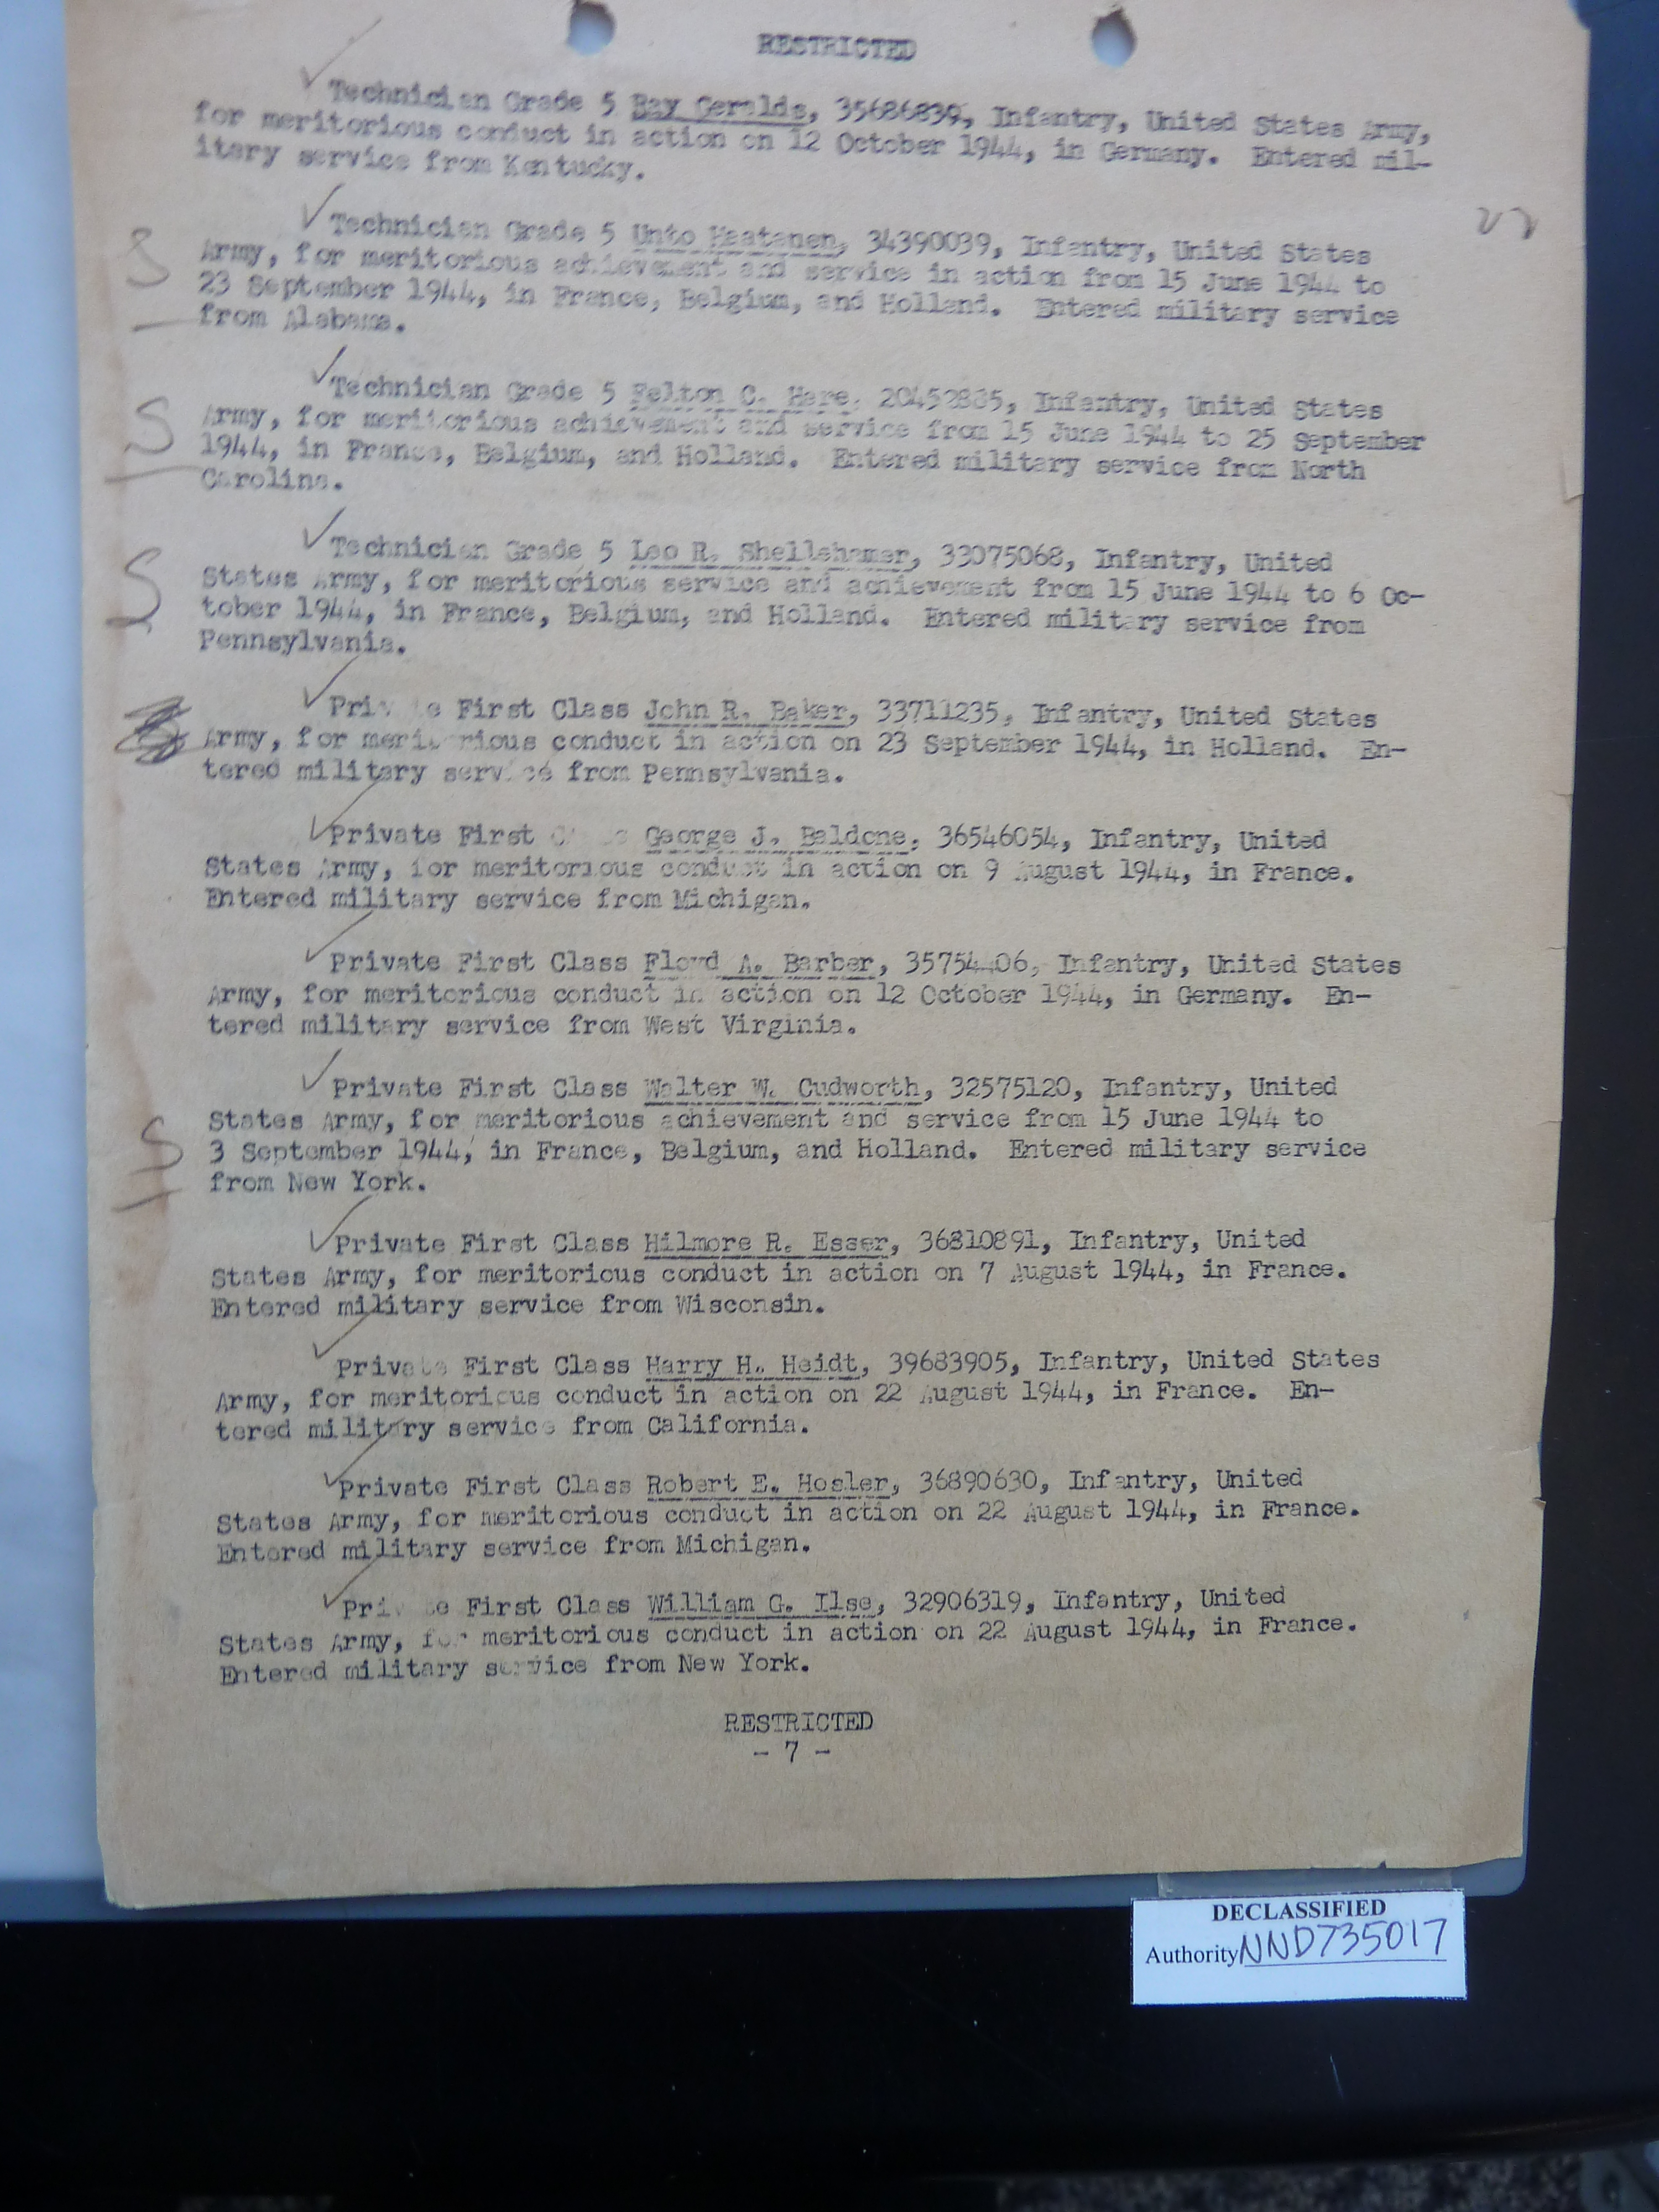 RESTRICTED
Technician Grade 5 Ray Geralds, 35686839, Infantry, United States Army,
for meritorious conduct in action on 12 October 1944, in Germany. Entered mil-
itary service from Kentucky.
Technician Grade 5 Unto Haatanen, 34390039, Infantry, United States
Army, for meritorious achievement and service in action from 15 June 1944 to
23 September 1944, in France, Belgium, and Holland. Entered military service
from Alabama.
S
Technician Grade 5 Felton C. Hare, 20452885, Infantry, United States
Army, for meritorious achievement and service from 15 June 1944 to 25 September
1944, in France, Belgium, and Holland. Entered military service from North
Carolina.
S
Technician Grade 5 Leo R. Shellehamer, 33075068, Infantry, United
States Army, for meritorious service and achievement from 15 June 1944 to 6 Oc-
tober 1944, in France, Belgium, and Holland. Entered military service from
Pennsylvania.
S
Private First Class John R. Baker, 33711235, Infantry, United States
Army, for meritorious conduct in action on 23 September 1944, in Holland. En-
tered military service from Pennsylvania.
Private First Class George J. Baldone, 36546054, Infantry, United
States Army, for meritorious conduct in action on 9 August 1944, in France.
Entered military service from Michigan.
Private First Class Floyd A. Barber, 35754406, Infantry, United States
Army, for meritorious conduct in action on 12 October 1944, in Germany. En-
tered military service from West Virginia.
Private First Class Walter W. Cudworth, 32575120, Infantry, United
States Army, for meritorious achievement and service from 15 June 1944 to
3 September 1944, in France, Belgium, and Holland. Entered military service
from New York.
S
Private First Class Hilmore R. Esser, 36810891, Infantry, United
States Army, for meritorious conduct in action on 7 August 1944, in France.
Entered military service from Wisconsin.
Private First Class Harry H. Heidt, 39683905, Infantry, United States
Army, for meritorious conduct in action on 22 August 1944, in France. En-
tered military service from California.
Private First Class Robert E. Hosler, 36890630, Infantry, United
States Army, for meritorious conduct in action on 22 August 1944, in France.
Entered military service from Michigan.
Private First Class William G. Ilse, 32906319, Infantry, United
States Army, for meritorious conduct in action on 22 August 1944, in France.
Entered military service from New York.
RESTRICTED
- 7 -
DECLASSIFIED
Authority NND735017